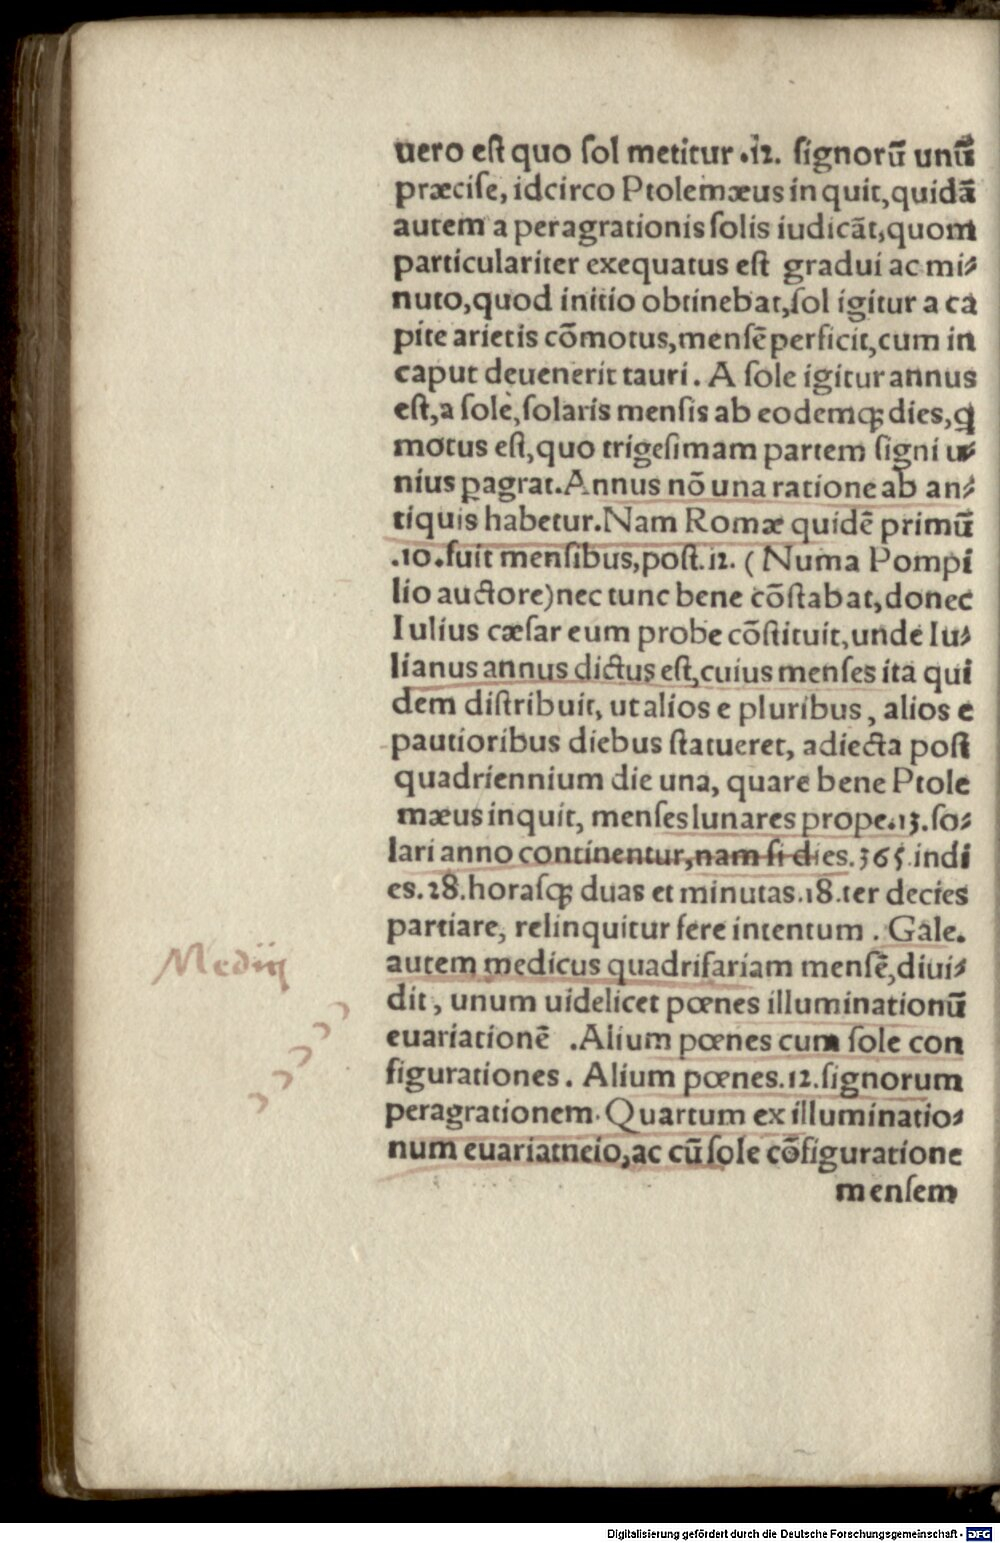 uero est quo sol metitur .12. signorũ unũ
præcise, idcirco Ptolemæus in quit, quidã
autem a peragrationis solis iudicãt, quom
particulariter exequatus est gradui ac mi⸗
nuto, quod initio obtinebat, sol igitur a ca
pite arietis cõmotus, mensẽ perficit, cum in
caput deuenerit tauri. A sole igitur annus
est, a sole, solaris mensis ab eodemqꝫ dies, ꝗ
motus est, quo trigesimam partem signi u⸗
nius ꝑagrat. Annus nõ una ratione ab an⸗
tiquis habetur. Nam Romæ quidẽ primũ
.10. fuit mensibus, post .12. (Numa Pompi
lio auctore) nec tunc bene cõstabat, donec
Iulius cæsar eum probe cõstituit, unde Iu⸗
lianus annus dictus est, cuius menses ita qui
dem distribuit, ut alios e pluribus, alios e
pautioribus diebus statueret, adiecta post
quadriennium die una, quare bene Ptole
mæus inquit, menses lunares prope .13. so⸗
lari anno continentur, nam si dies. 365. in di
es. 28. horasqꝫ duas et minutas. 18. ter decies
partiare, relinquitur fere intentum . Gale.
autem medicus quadrifariam mensẽ, diui⸗
dit, unum uidelicet pœnes illuminationũ
euariationẽ . Alium pœnes cum sole con
figurationes. Alium pœnes. 12. signorum
peragrationem. Quartum ex illuminatio⸗
num euariatneio, ac cũ sole cõfiguratione
mensem
Digitalisierung gefördert durch die Deutsche Forschungsgemeinschaft - DFG